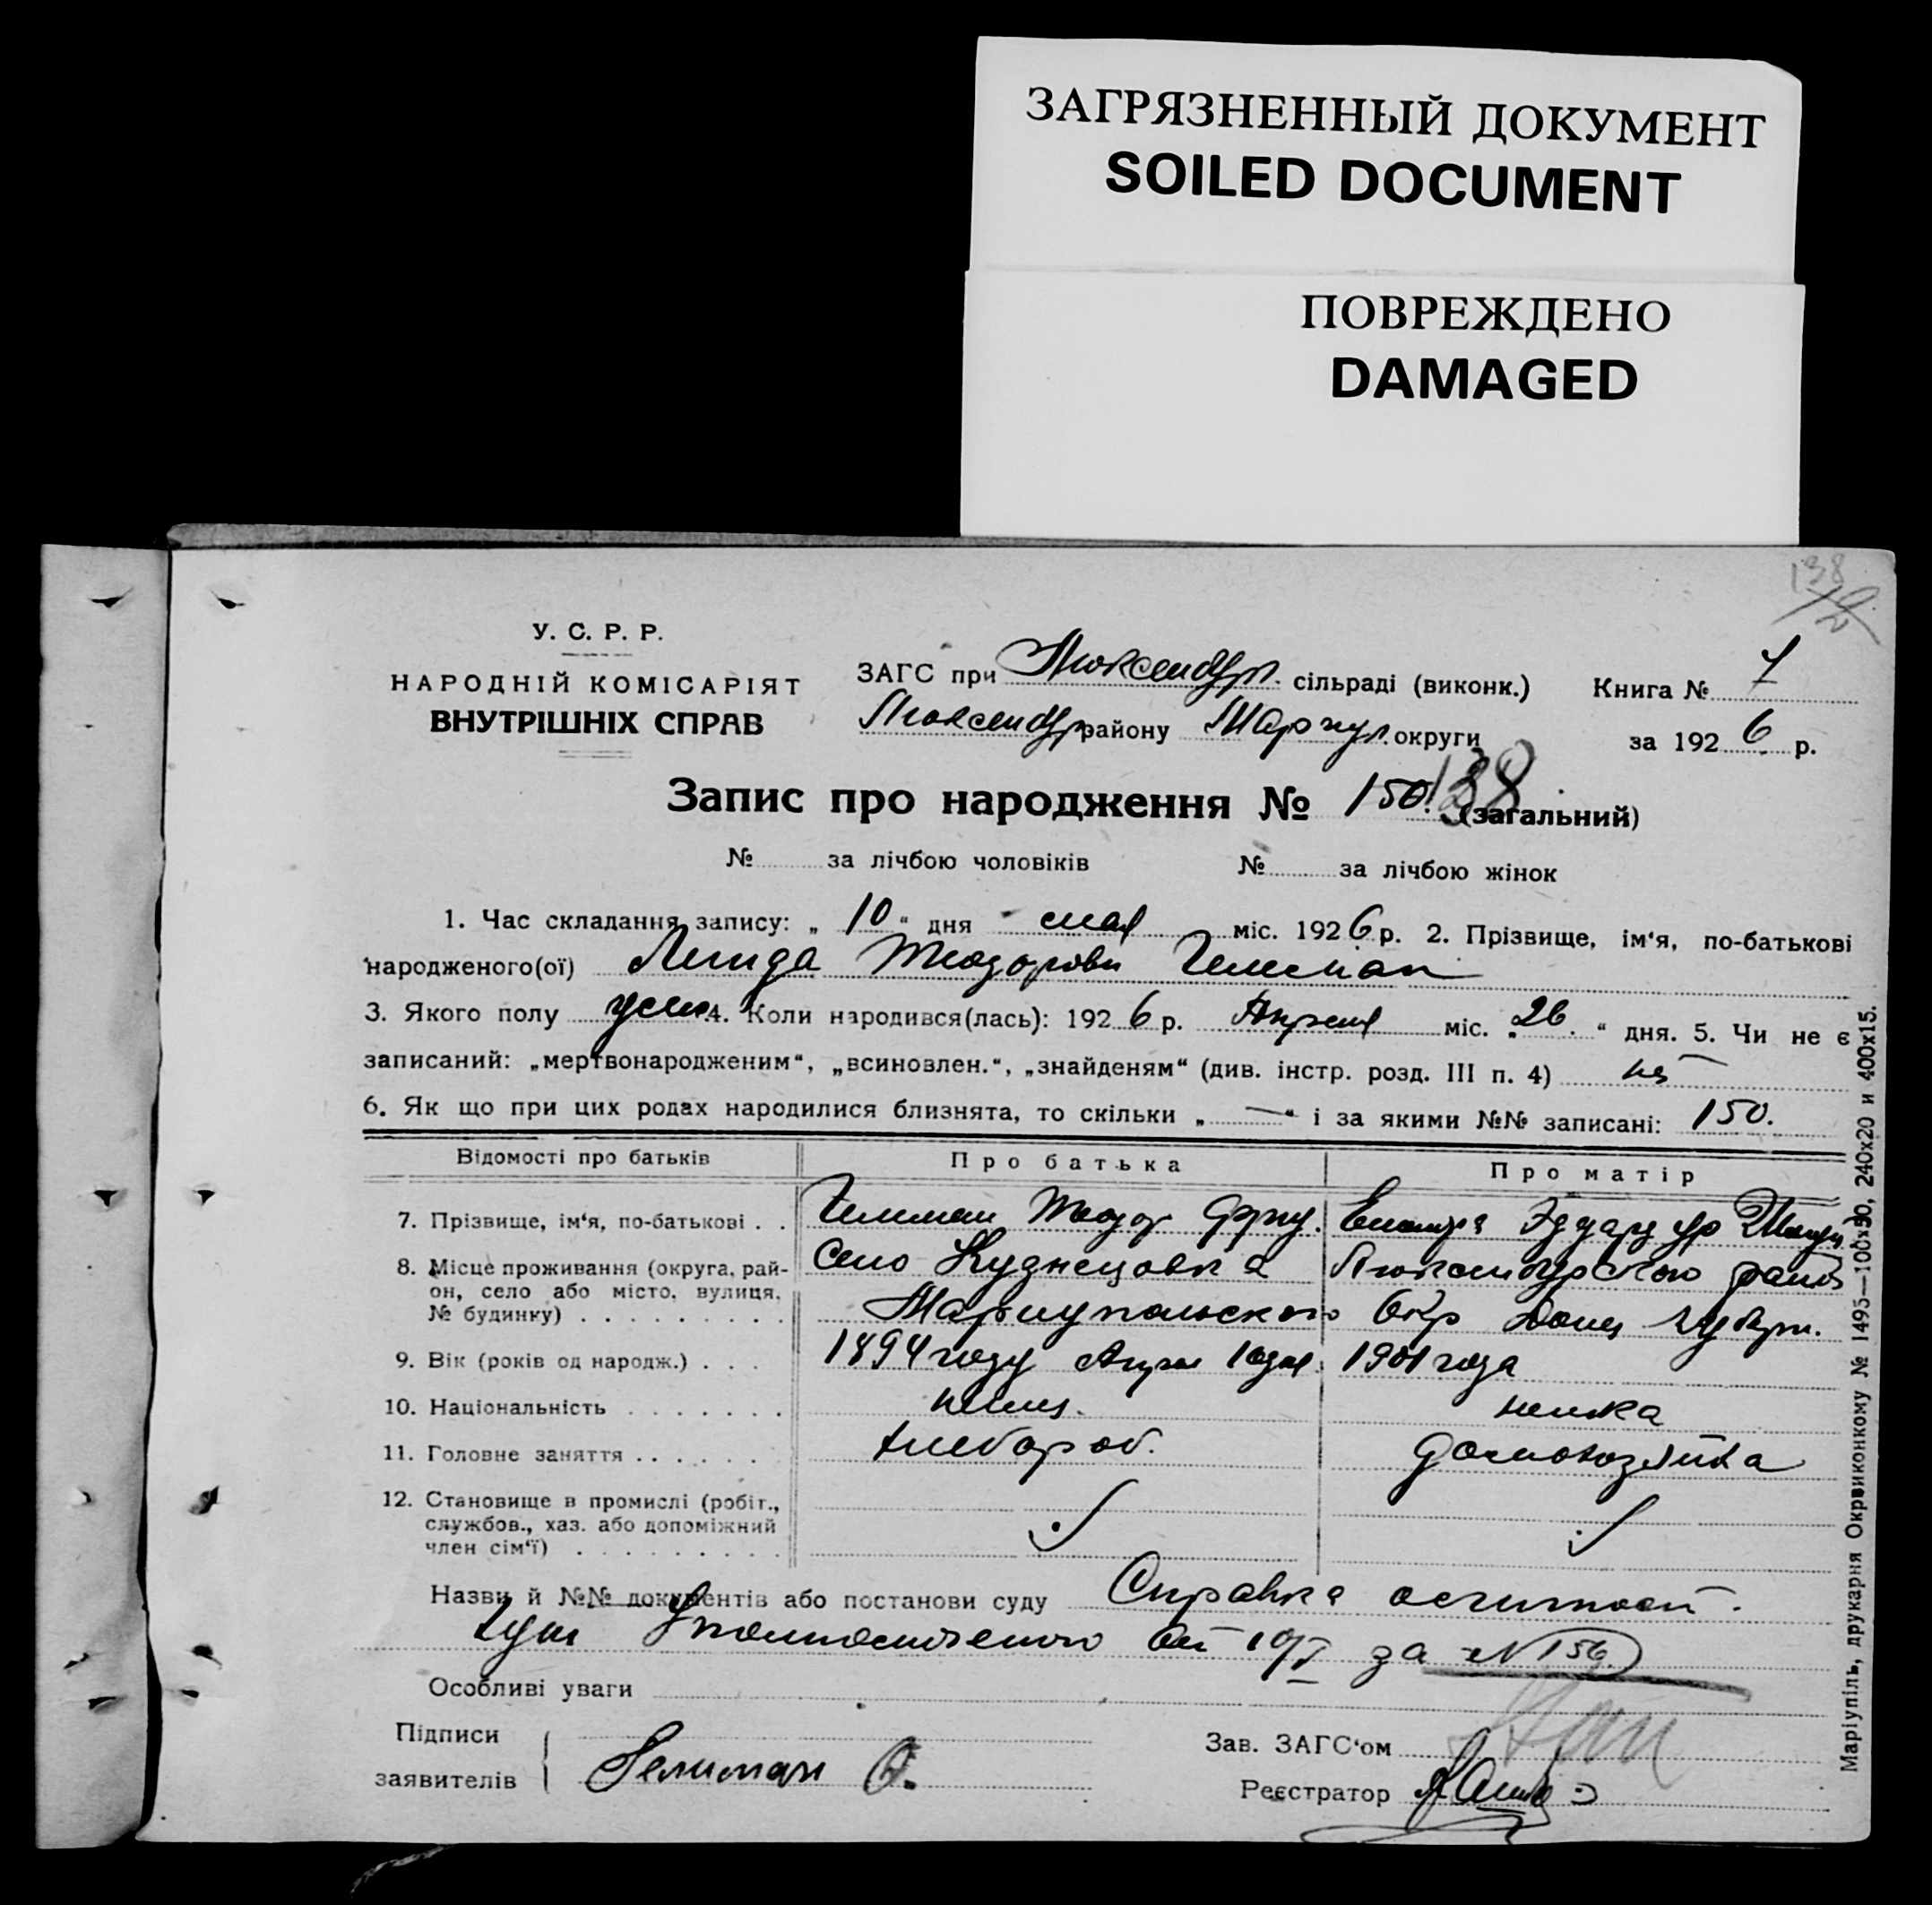 ЗАГРЯЗНЕННЫЙ ДОКУМЕНТ
SOILED DOCUMENT
ПОВРЕЖДЕНО
DAMAGED
138
У. С. Р. Р.
НАРОДНІЙ КОМІСАРІЯТ
ВНУТРІШНІХ СПРАВ
ЗАГС при Люксембур. сільраді (виконк.) Книга № 7
Люксембур району Мариуп. округи за 1926 р.
Запис про народження № 150. 138 (загальний)
№ за лічбою чоловіків № за лічбою жінок
1. Час складання запису: „ 10 “ дня мая міс. 1926 р. 2. Прізвище, ім‘я, по-батькові
народженого(ої) Линда Теодоровн Гельман
3. Якого полу жен. 4. Коли народився(лась): 1926 р. Апреля міс. „26.“ дня. 5. Чи не є
записаний: „мертвонародженим“, „всиновлен.“, „знайденям“ (див. інстр. розд. III п. 4)
6. Як що при цих родах народилися близнята, то скільки „ — “ і за якими №№ записані: 150.
Відомості про батьків Про батька Про матір
7. Прізвище, ім‘я, по-батькові . . Гельман Теодор Эдуард
8. Місце проживання (округа, рай-
он, село або місто, вулиця,
№ будинку) Село Кузнецовка Люксембургского район
Мариупольского Окр Донец губерн.
9. Вік (років од народж.) . . . 1894 году 1901 года
10. Національність немец. немка
11. Головне заняття хлебороб. домохозяйка
12. Становище в промислі (робіт.,
службов., хаз. або допоміжний
член сім‘ї)
Назви й №№ документів або постанови суду Справка
Уполномоченого от 10/V за № 156.
Особливі уваги
Підписи
заявителів Гельман
Зав. ЗАГС‘ом
Реєстратор
Маріупіль, друкарня Окрвиконкому № 1495—100х50, 240х20 и 400х15.